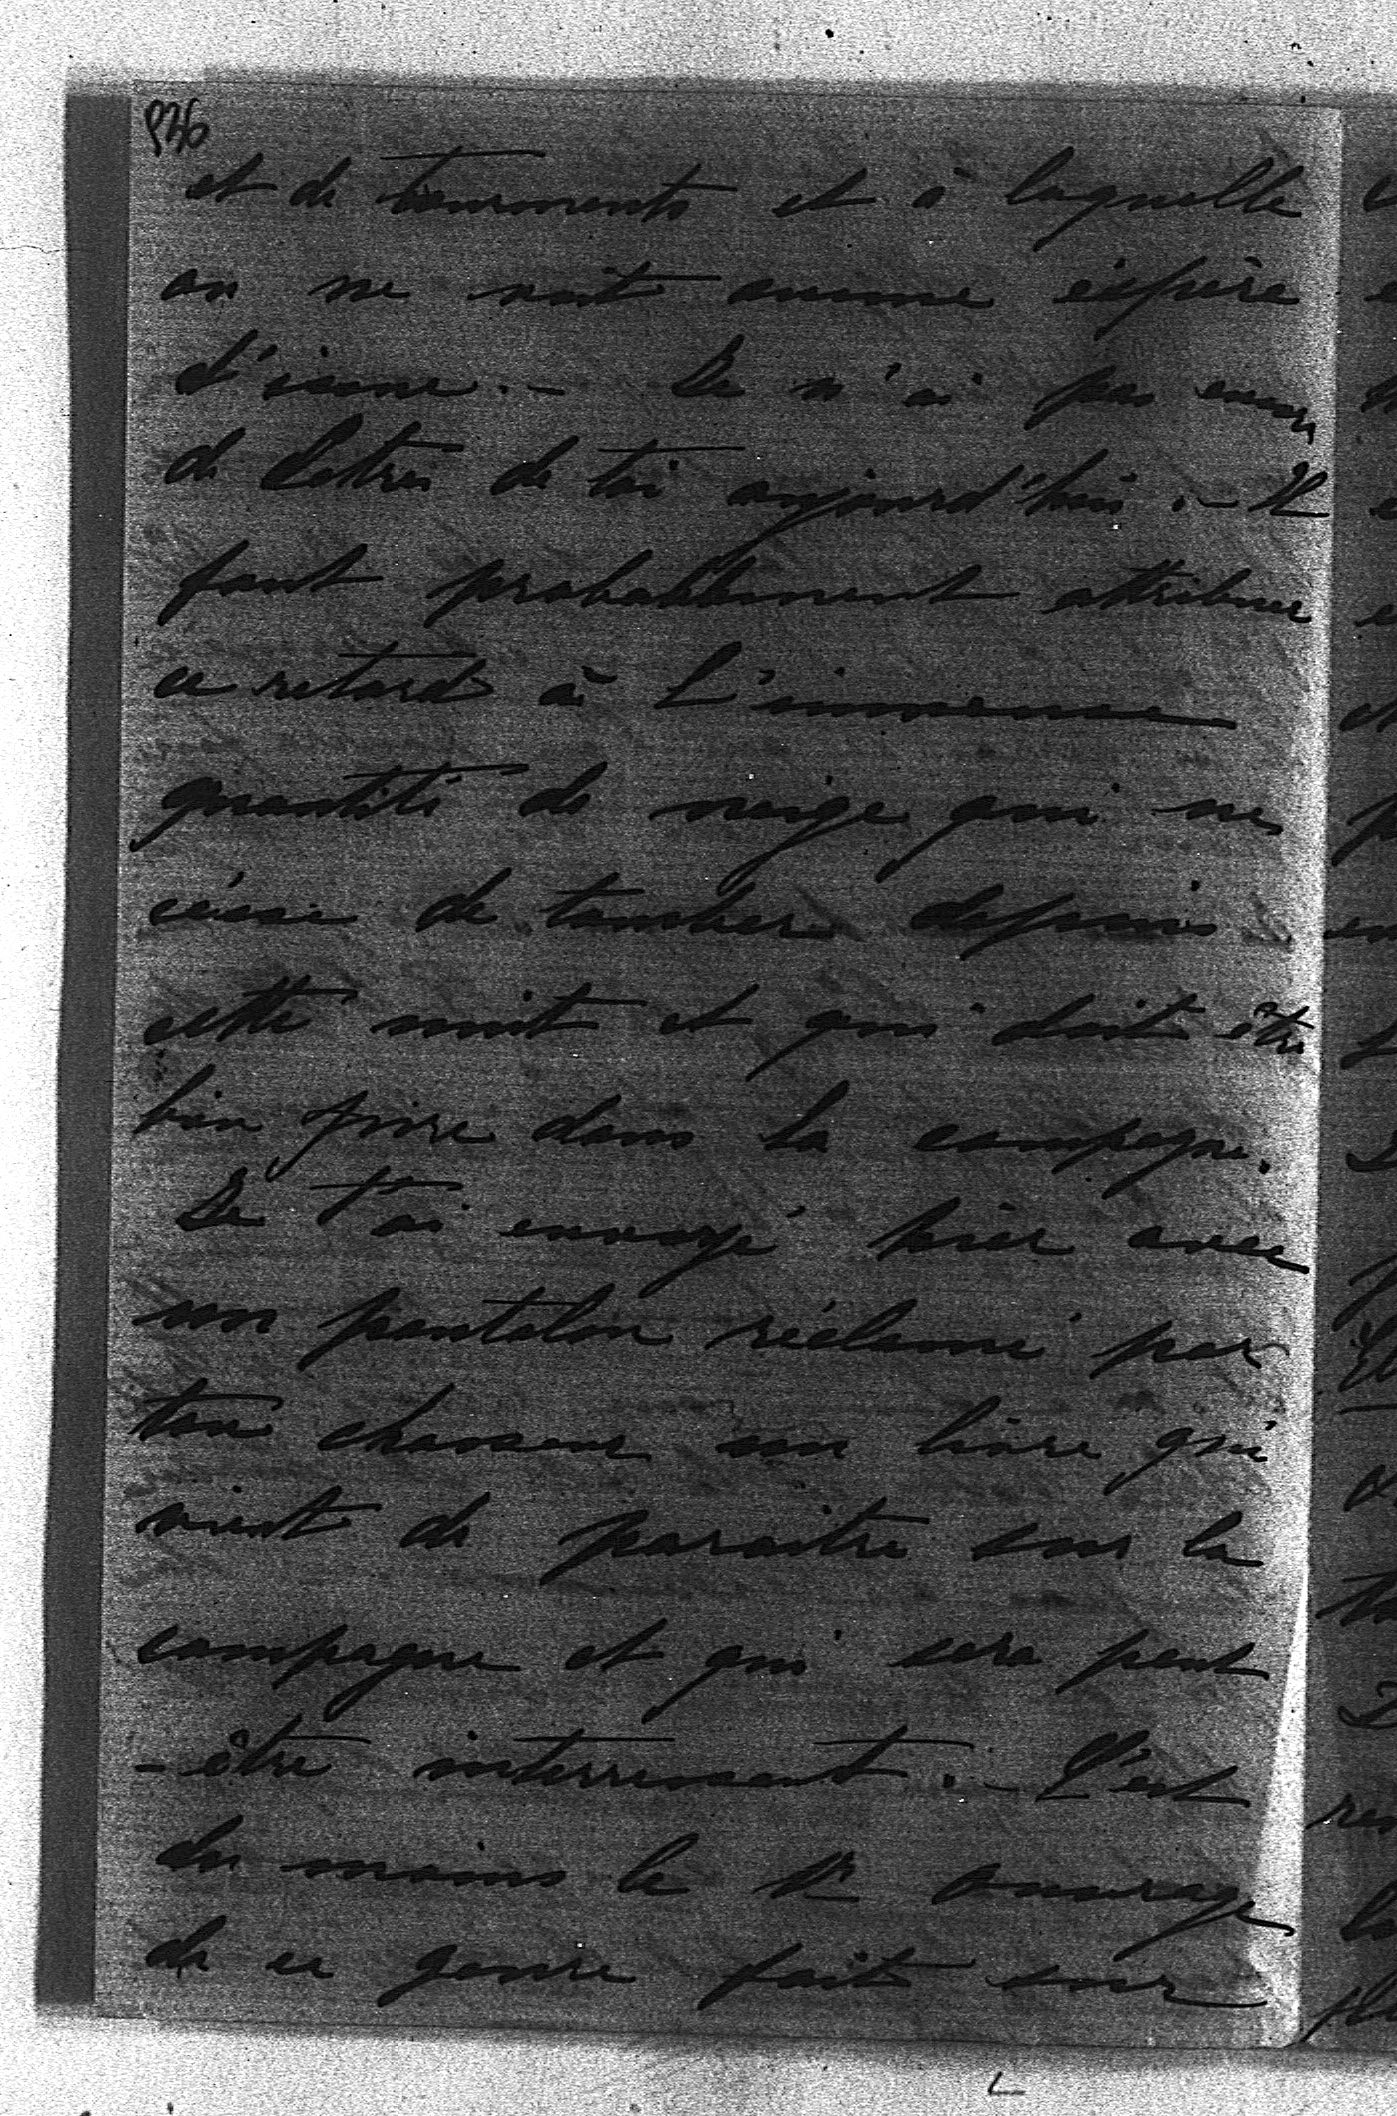 936
et de tourments et à laquelle
on ne voit aucune éspère
d'issue. – Je n'ai pas encor
de lettres de toi aujourd'hui. – Il
faut probablement attribuer
ce retard à l'immense
quantité de neige qui ne
césse de tomber depuis
cette nuit et qui doit être
bien pire dans la campagne.
Je t'ai envoyé hier avec
un pantalon réclamé par
ton chasseur un livre qui
vient de paraitre sur la
campagne et qui sera peut
-être interressant. – C'est
du moins le 1er ouvrage
de ce genre fait sur